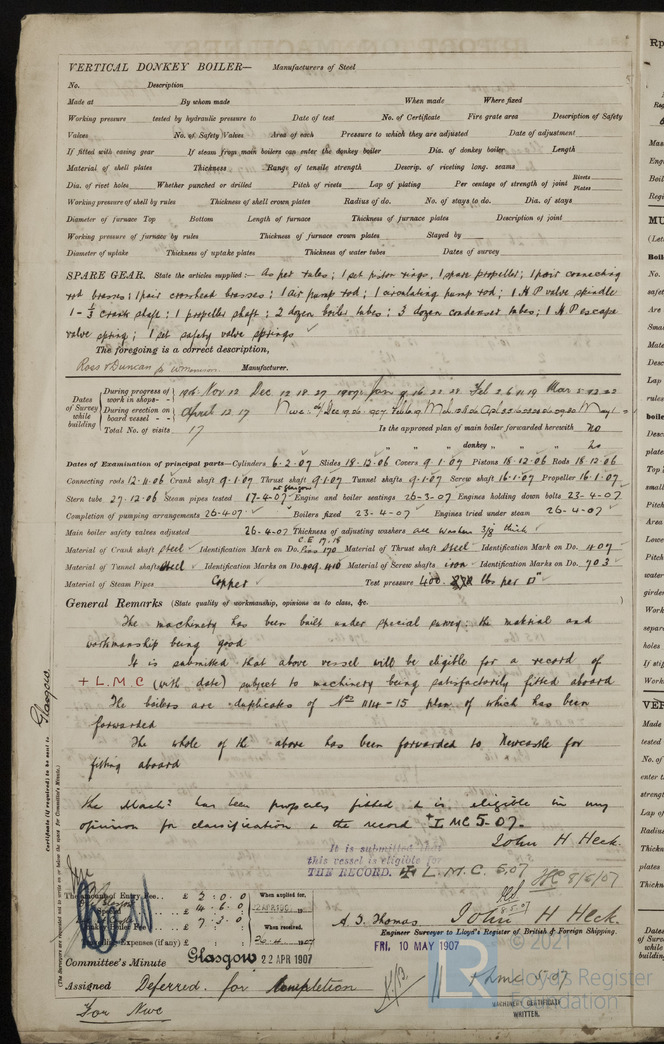 VERTICAL DONKEY BOILER— Manufacturers of Steel
No. Description
Made at By whom made When made Where fixed
Working pressure tested by hydraulic pressure to Date of test No. of Certificate Fire grate area Description of Safety
Valves No. of Safety Valves Area of each Pressure to which they are adjusted Date of adjustment
If fitted with easing gear If steam from main boilers can enter the donkey boiler Dia. of donkey boiler Length
Material of shell plates Thickness Range of tensile strength Descrip. of riveting long. seams
Dia. of rivet holes Whether punched or drilled Pitch of rivets Lap of plating Per centage of strength of joint Rivets Plates
Working pressure of shell by rules Thickness of shell crown plates Radius of do. No. of stays to do. Dia. of stays
Diameter of furnace Top Bottom Length of furnace Thickness of furnace plates Description of joint
Working pressure of furnace by rules Thickness of furnace crown plates Stayed by
Diameter of uptake Thickness of uptake plates Thickness of water tubes Dates of survey
SPARE GEAR. State the articles supplied:— As per rules; 1 set piston rings, 1 spare propeller; 1 pair connecting
rod brasses; 1 pair crosshead brasses; 1 air pump rod; 1 circulating pump rod; 1 H P valve spindle
1-⅓ crank shaft; 1 propeller shaft; 2 dozen boiler tubes; 3 dozen condenser tubes; 1 H P escape
valve spring; 1 set safety valve springs
The foregoing is a correct description,
Ross & Duncan Manufacturer.
Dates of Survey while building
During progress of work in shops - - 1906 Nov 12 Dec 12 18 27 1907 Jan 9 16 22 28 Feb 2 6 11 19 Mar 5 13 22
During erection on board vessel - - - April 12 17
Total No. of visits 17 Is the approved plan of main boiler forwarded herewith no
" " " donkey " " " no
Dates of Examination of principal parts—Cylinders 6-2-07 Slides 18-12-06 Covers 9-1-07 Pistons 18-12-06 Rods 18-12-06
Connecting rods 12-11-06 Crank shaft 9-1-07 Thrust shaft 9-1-07 Tunnel shafts 9-1-07 Screw shaft 16-1-07 Propeller 16-1-07
at Glasgow
Stern tube 27-12-06 Steam pipes tested 17-4-07 Engine and boiler seatings 26-3-07 Engines holding down bolts 23-4-07
Completion of pumping arrangements 26-4-07 Boilers fixed 23-4-07 Engines tried under steam 26-4-07
Main boiler safety valves adjusted 26-4-07 Thickness of adjusting washers all washers 3/8 thick
Material of Crank shaft steel Identification Mark on Do. 170 Material of Thrust shaft steel Identification Mark on Do. 407
Material of Tunnel shafts steel Identification Marks on Do. 409 410 Material of Screw shafts iron Identification Marks on Do. 703
Material of Steam Pipes Copper Test pressure 400 lbs per □"
General Remarks (State quality of workmanship, opinions as to class, &c.
The machinery has been built under special survey: the material and
workmanship being good
It is submitted that above vessel will be eligible for a record of
+ L.M.C (with date) subject to machinery being satisfactorily fitted aboard
The boilers are duplicates of Nos 1114-15 plan of which has been
forwarded
The whole of the above has been forwarded to Newcastle for
fitting aboard
The Machy has been properly fitted & is eligible in my
opinion for classification & the record + L MC 5-07.
John H Heck.
It is submitted that
this vessel is eligible for
THE RECORD. + L.M.C. 5.07
8/5/07
Certificate (if required) to be sent to Glasgow.
(The Surveyors are requested not to write on or below the space for Committee's Minute.)
The amount of Entry Fee.. £ 2 : 0 : 0 When applied for,
£ 4 : 6 : 0
£ 7 : 3 : 0 When received,
Travelling Expenses (if any) £ : : 1907
A. J. Thomas John H Heck.
Engineer Surveyor to Lloyd's Register of British & Foreign Shipping.
Committee's Minute Glasgow 22 APR 1907
FRI. 10 MAY 1907
Assigned Deferred for Completion
+ L.M.C. 5.07
For Nwc
MACHINERY CERTIFICATE
WRITTEN.
© 2021
Lloyd's Register
Foundation
LR